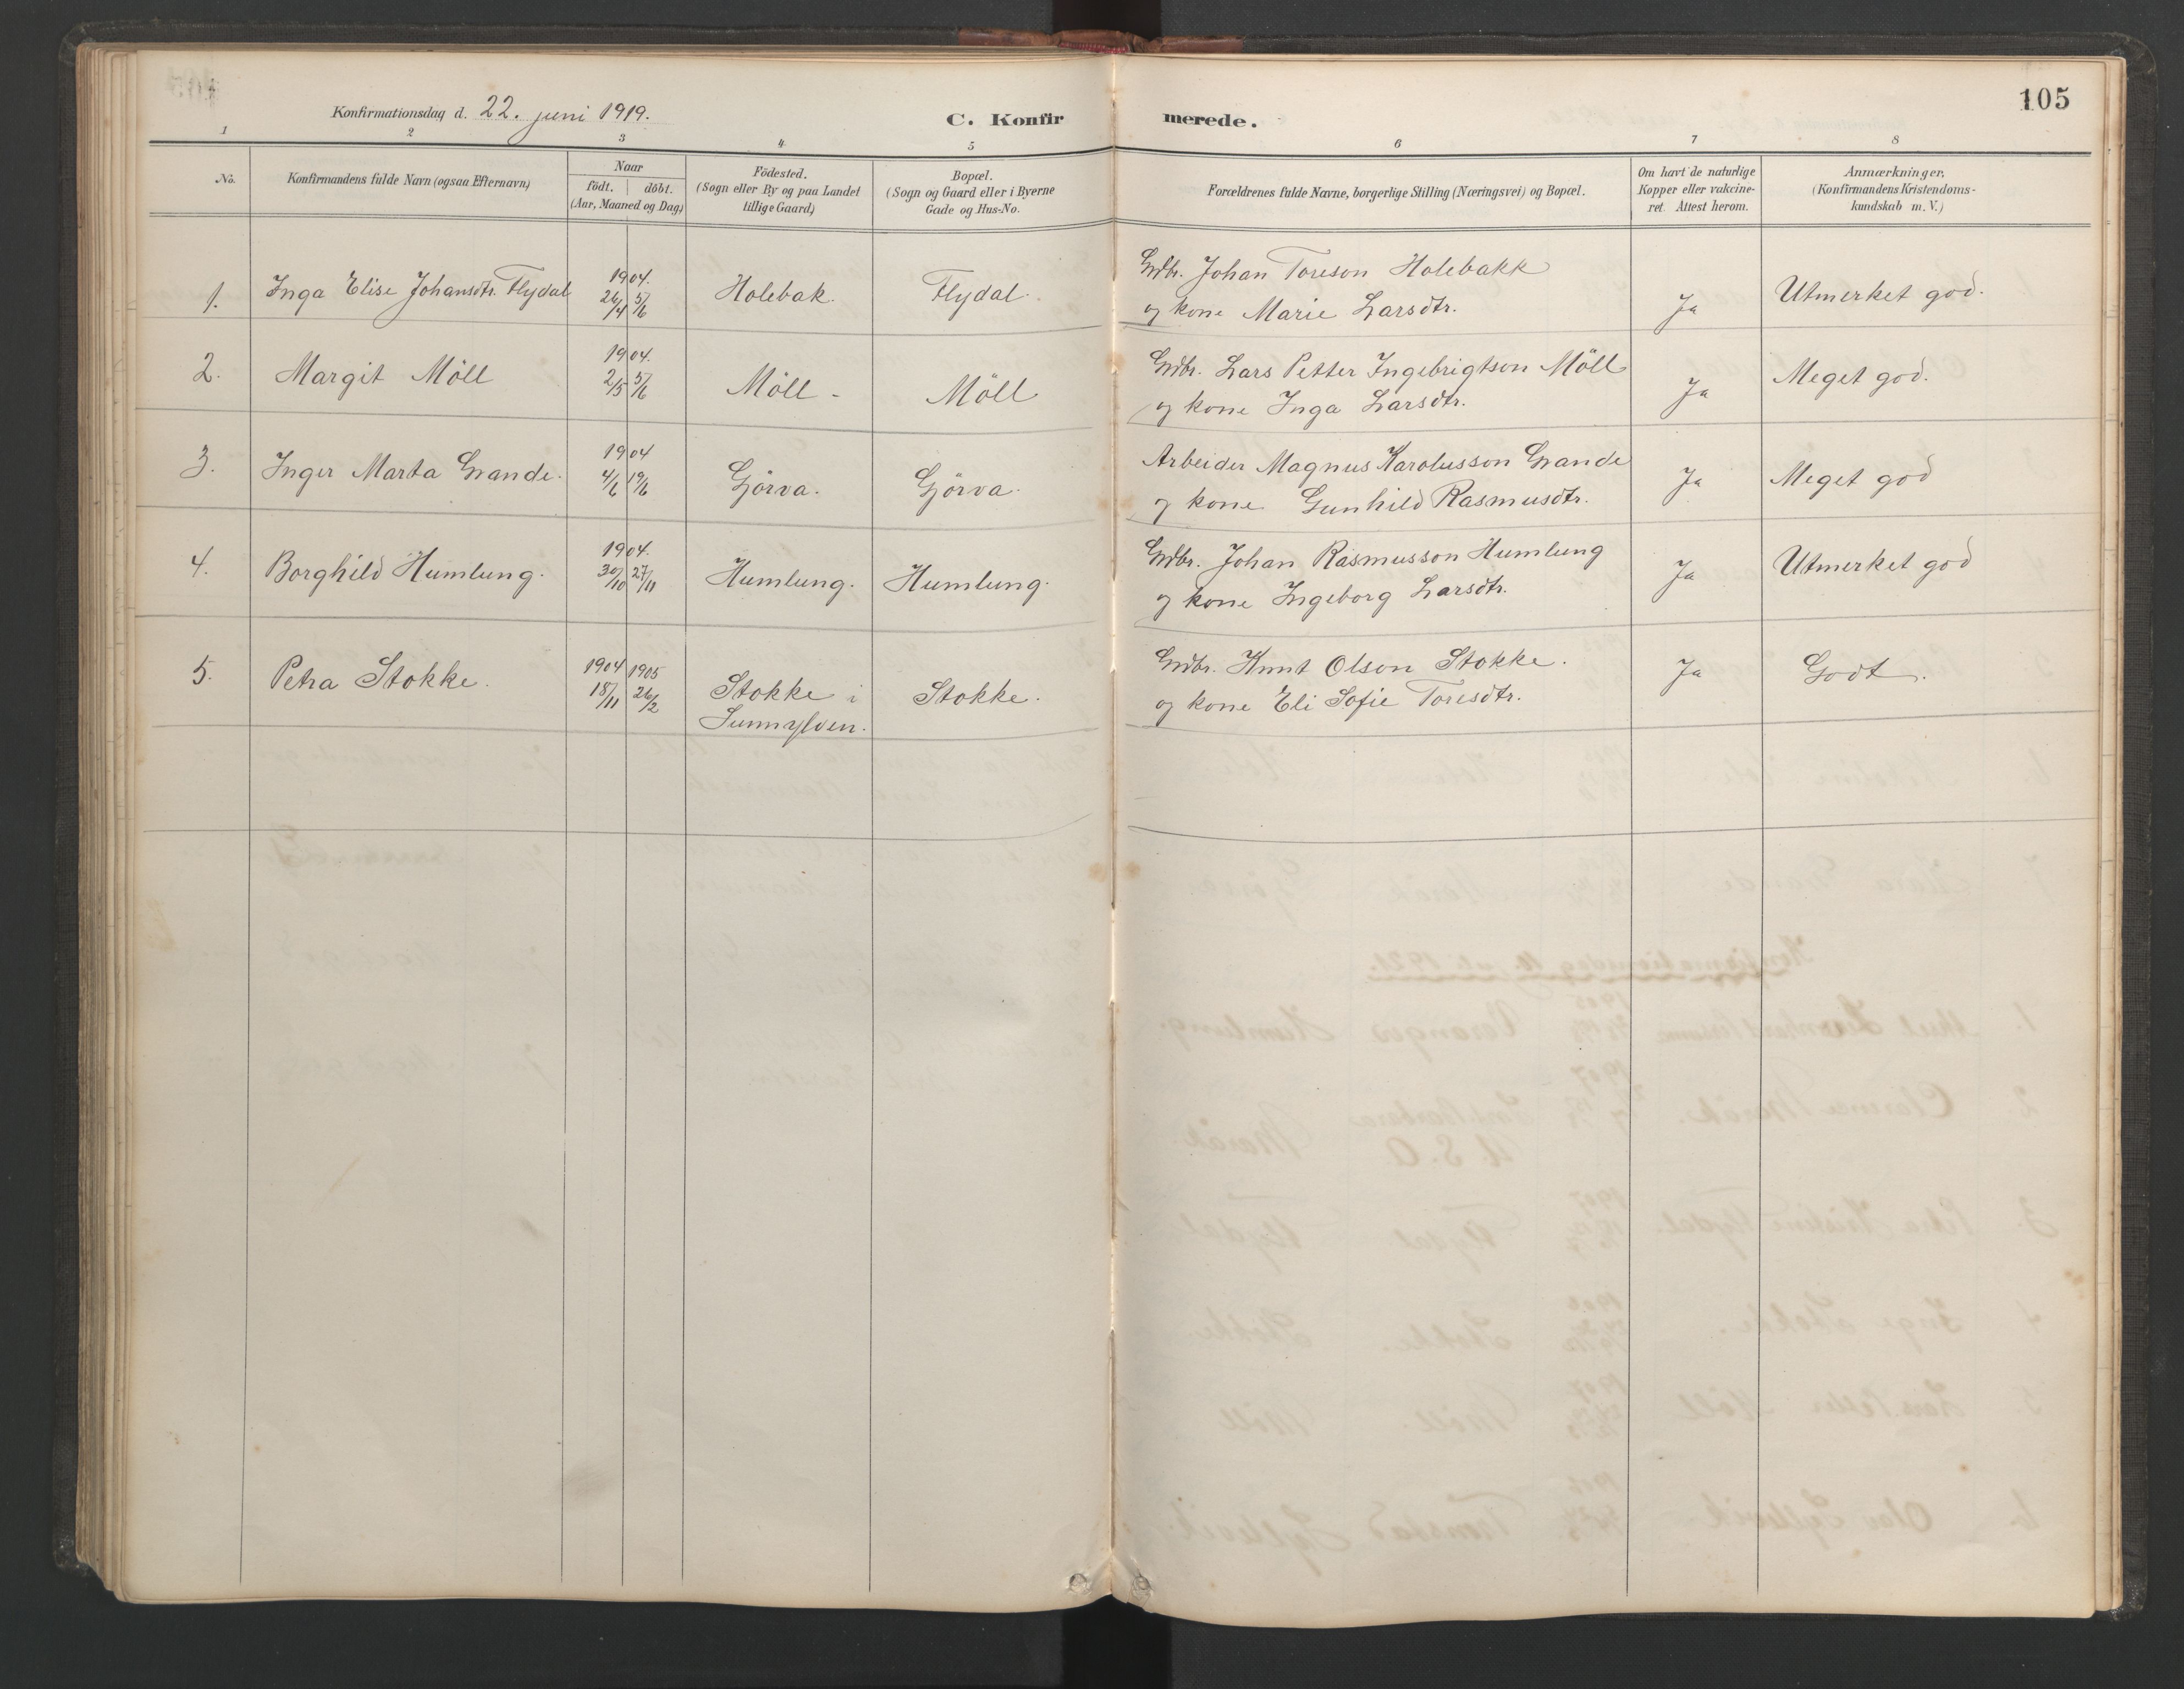 105
Konfirmationsdag d. 22. juni 1919.
C. Konfirmerede.
1 2 3 4 5 6 7 8
No.
Konfirmandens fulde Navn (ogsaa Efternavn)
Naar
födt. döbt.
(Aar, Maaned og Dag)
Födested.
(Sogn eller By og paa Landet
tillige Gaard)
Bopæl.
(Sogn og Gaard eller i Byerne
Gade og Hus-No.
Forældrenes fulde Navne, borgerlige Stilling (Næringsvei) og Bopæl.
Om havt de naturlige
Kopper eller vakcine-
ret. Attest herom.
Anmærkninger,
(Konfirmandens Kristendoms-
kundskab m. V.)
1. Inga Elise Johansdtr. Flydal 1904. 26/4 5/6 Holebak. Flydal. Grdbr. Johan Toreson Holebakk
og kone Marie Larsdtr. Ja Utmerket god.
2. Margit Möll 1904. 2/5 5/6 Möll - Möll Grdbr. Lars Petter Ingebrigtson Möll
og kone Inga Larsdtr. Ja Meget god.
3. Inger Marta Grande. 1904 4/6 19/6 Gjörva. Gjörva. Arbeider Magnus Karolusson Grande
og kone Gunhild Rasmusdtr. Ja Meget god
4. Borghild Humlung. 1904. 30/10 27/11 Humlung. Humlung. Grdbr. Johan Rasmusson Humlung
og kone Ingeborg Larsdtr. Ja Utmerket god
5. Petra Stokke. 1904 18/11 1905 26/2 Stokke i
Sunnylven. Stokke. Grdbr. Knut Olson Stokke.
og kone Eli Sofie Toresdtr. Ja Godt.